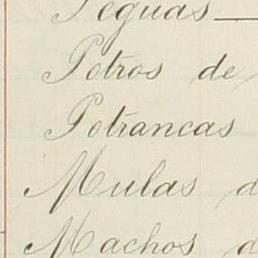 Yeguas
Potros de
Potrancas
Mulas d
Machos d